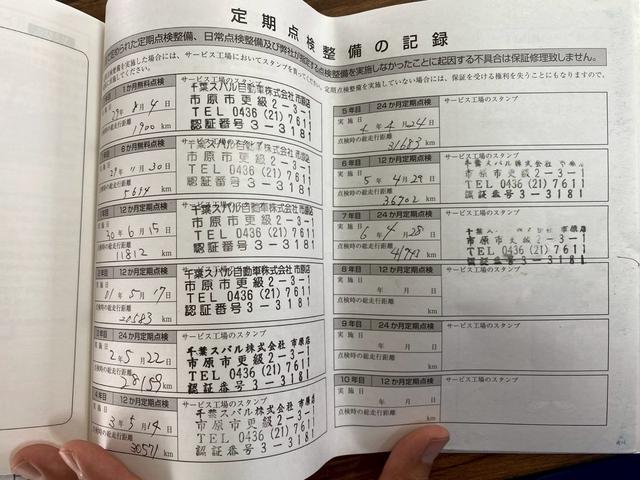 定期点検整備の記録
められた定期点検整備、日常点検整備及び弊社が指定する点検整備を実施しなかったことに起因する不具合は保証修理致しません。
備を実施した場合には、サービス工場においてスタンプを貰ってください。
定期点検整備を実施していない場合には、保証を受ける権利を失うこともありますので、
実施してください。
1か月無料点検
サービス工場のスタンプ
29年8月4日
点検時の総走行距離
1900 km
千葉スバル自動車株式会社 市原店
市原市更級2-3-1
TEL 0436 (21) 7611
認証番号 3-3181
6か月無料点検
サービス工場のスタンプ
29年11月30日
点検時の総走行距離
5694 km
千葉スバル自動車株式会社 市原店
市原市更級2-3-1
TEL 0436 (21) 7611
認証番号 3-3181
12か月定期点検
サービス工場のスタンプ
30年6月15日
点検時の総走行距離
11812 km
千葉スバル自動車株式会社 市原店
市原市更級2-3-1
TEL 0436 (21) 7611
認証番号 3-3181
2年目 12か月定期点検
サービス工場のスタンプ
実施日
01年5月17日
点検時の総走行距離
20583 km
千葉スバル自動車株式会社 市原店
市原市更級2-3-1
TEL 0436 (21) 7611
認証番号 3-3181
3年目 24か月定期点検
サービス工場のスタンプ
実施日
2年5月22日
点検時の総走行距離
28159 km
千葉スバル株式会社 市原店
市原市更級2-3-1
TEL 0436 (21) 7611
認証番号 3-3181
4年目 12か月定期点検
サービス工場のスタンプ
実施日
3年5月14日
点検時の総走行距離
30571 km
千葉スバル株式会社 市原店
市原市更級2-3-1
TEL 0436 (21) 7611
認証番号 3-3181
5年目 24か月定期点検
サービス工場のスタンプ
実施日
4年4月24日
点検時の総走行距離
31683 km
6年目 12か月定期点検
サービス工場のスタンプ
実施日
5年4月29日
点検時の総走行距離
36702 km
千葉スバル株式会社
市原市更級2-3-1
TEL 0436 (21) 7611
認証番号 3-3181
7年目 24か月定期点検
サービス工場のスタンプ
実施日
6年4月28日
点検時の総走行距離
41743 km
株式会社 市原店
市原市更級2-3-1
TEL 0436 (21) 7611
認証番号 3-3181
8年目 12か月定期点検
サービス工場のスタンプ
実施日
年 月 日
点検時の総走行距離
km
9年目 24か月定期点検
サービス工場のスタンプ
実施日
年 月 日
点検時の総走行距離
km
10年目 12か月定期点検
サービス工場のスタンプ
実施日
年 月 日
点検時の総走行距離
km